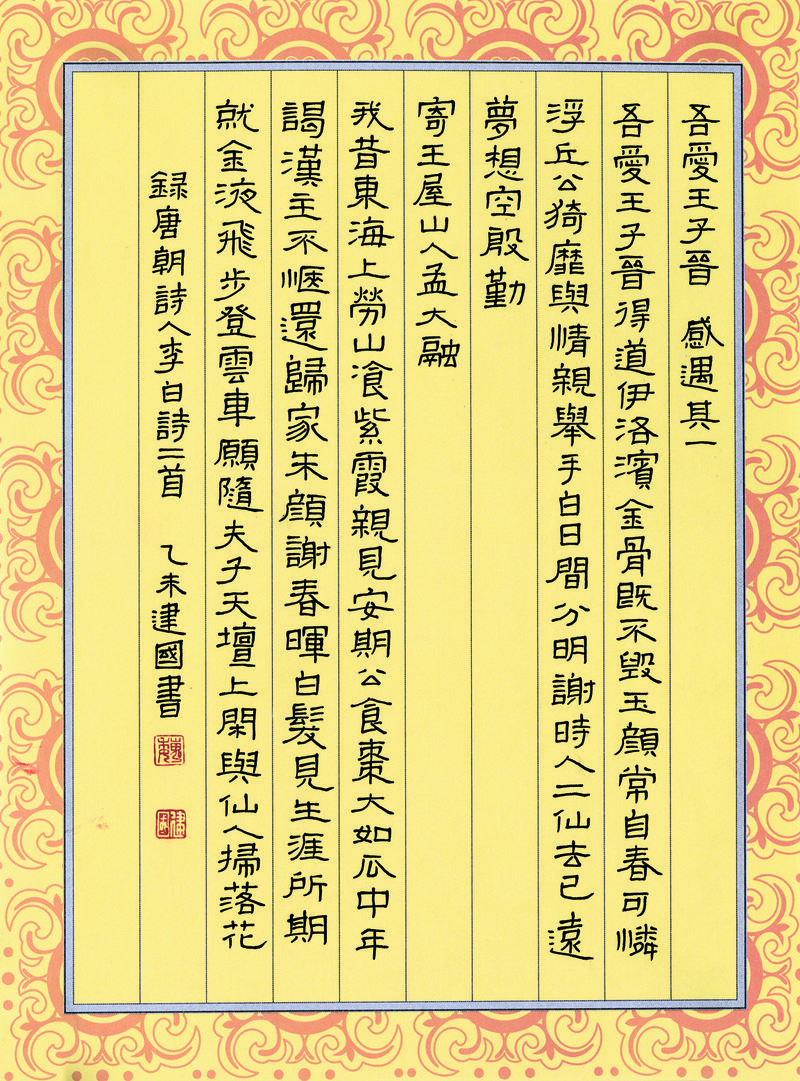 吾愛王子晉 感遇其一
吾愛王子晉得道伊洛濱金骨既不毀玉顏常自春可憐
浮丘公猗靡與情親舉手白日間分明謝時人二仙去已遠
夢想空殷勤
寄王屋山人孟大融
我昔東海上勞山飡紫霞親見安期公食棗大如瓜中年
謁漢主不愜還歸家朱顏謝春暉白髮見生涯所期
就金液飛步登雲車願隨夫子天壇上閑與仙人掃落花
録唐朝詩人李白詩二首 乙未建國書